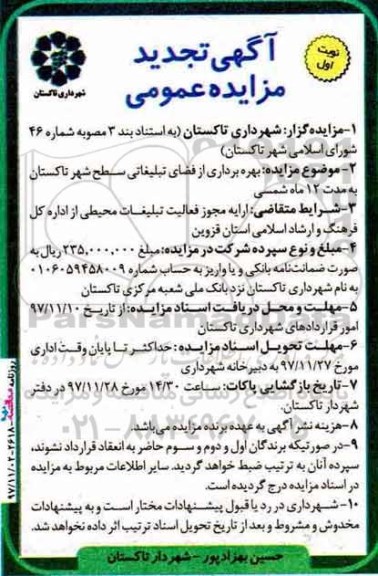 نوبت اول
شهرداری تاکستان
آگهی تجدید
مزایده عمومی
۱-مزایده‌گزار: شهرداری تاکستان (به استناد بند ۳ مصوبه شماره ۴۶
شورای اسلامی شهر تاکستان)
۲-موضوع مزایده: بهره برداری از فضای تبلیغاتی سطح شهر تاکستان
به مدت ۱۲ ماه شمسی
۳-شرایط متقاضی: ارایه مجوز فعالیت تبلیغات محیطی از اداره کل
فرهنگ و ارشاد اسلامی استان قزوین
۴-مبلغ و نوع سپرده شرکت در مزایده: مبلغ ۲۳۵,۰۰۰,۰۰۰ ریال به
صورت ضمانت‌نامه بانکی و یا واریز به حساب شماره ۰۱۰۶۰۵۹۴۵۸۰۰۹
به نام شهرداری تاکستان نزد بانک ملی شعبه مرکزی تاکستان
۵-مهلت و محل دریافت اسناد مزایده: از تاریخ ۹۷/۱۱/۱۰
امور قراردادهای شهرداری تاکستان
۶-مهلت تحویل اسناد مزایده: حداکثر تا پایان وقت اداری
مورخ ۹۷/۱۱/۲۷ به دبیرخانه شهرداری
۷-تاریخ بازگشایی پاکات: ساعت ۱۴/۳۰ مورخ ۹۷/۱۱/۲۸ در دفتر
شهردار تاکستان.
۸-هزینه نشر آگهی به عهده برنده مزایده می‌باشد.
۹-در صورتیکه برندگان اول و دوم و سوم حاضر به انعقاد قرارداد نشوند،
سپرده آنان به ترتیب ضبط خواهد گردید. سایر اطلاعات مربوط به مزایده
در اسناد مزایده درج گردیده است.
۱۰-شهرداری در رد یا قبول پیشنهادات مختار است و به پیشنهادات
مخدوش و مشروط و بعد از تاریخ تحویل اسناد ترتیب اثر داده نخواهد شد.
حسین بهزادپور - شهردار تاکستان
ParsNamad
۰۲۱-۸۸۳۴۹۶۷۰
روزنامه ۲۶۱۸-۹۷/۱۱/۰۲